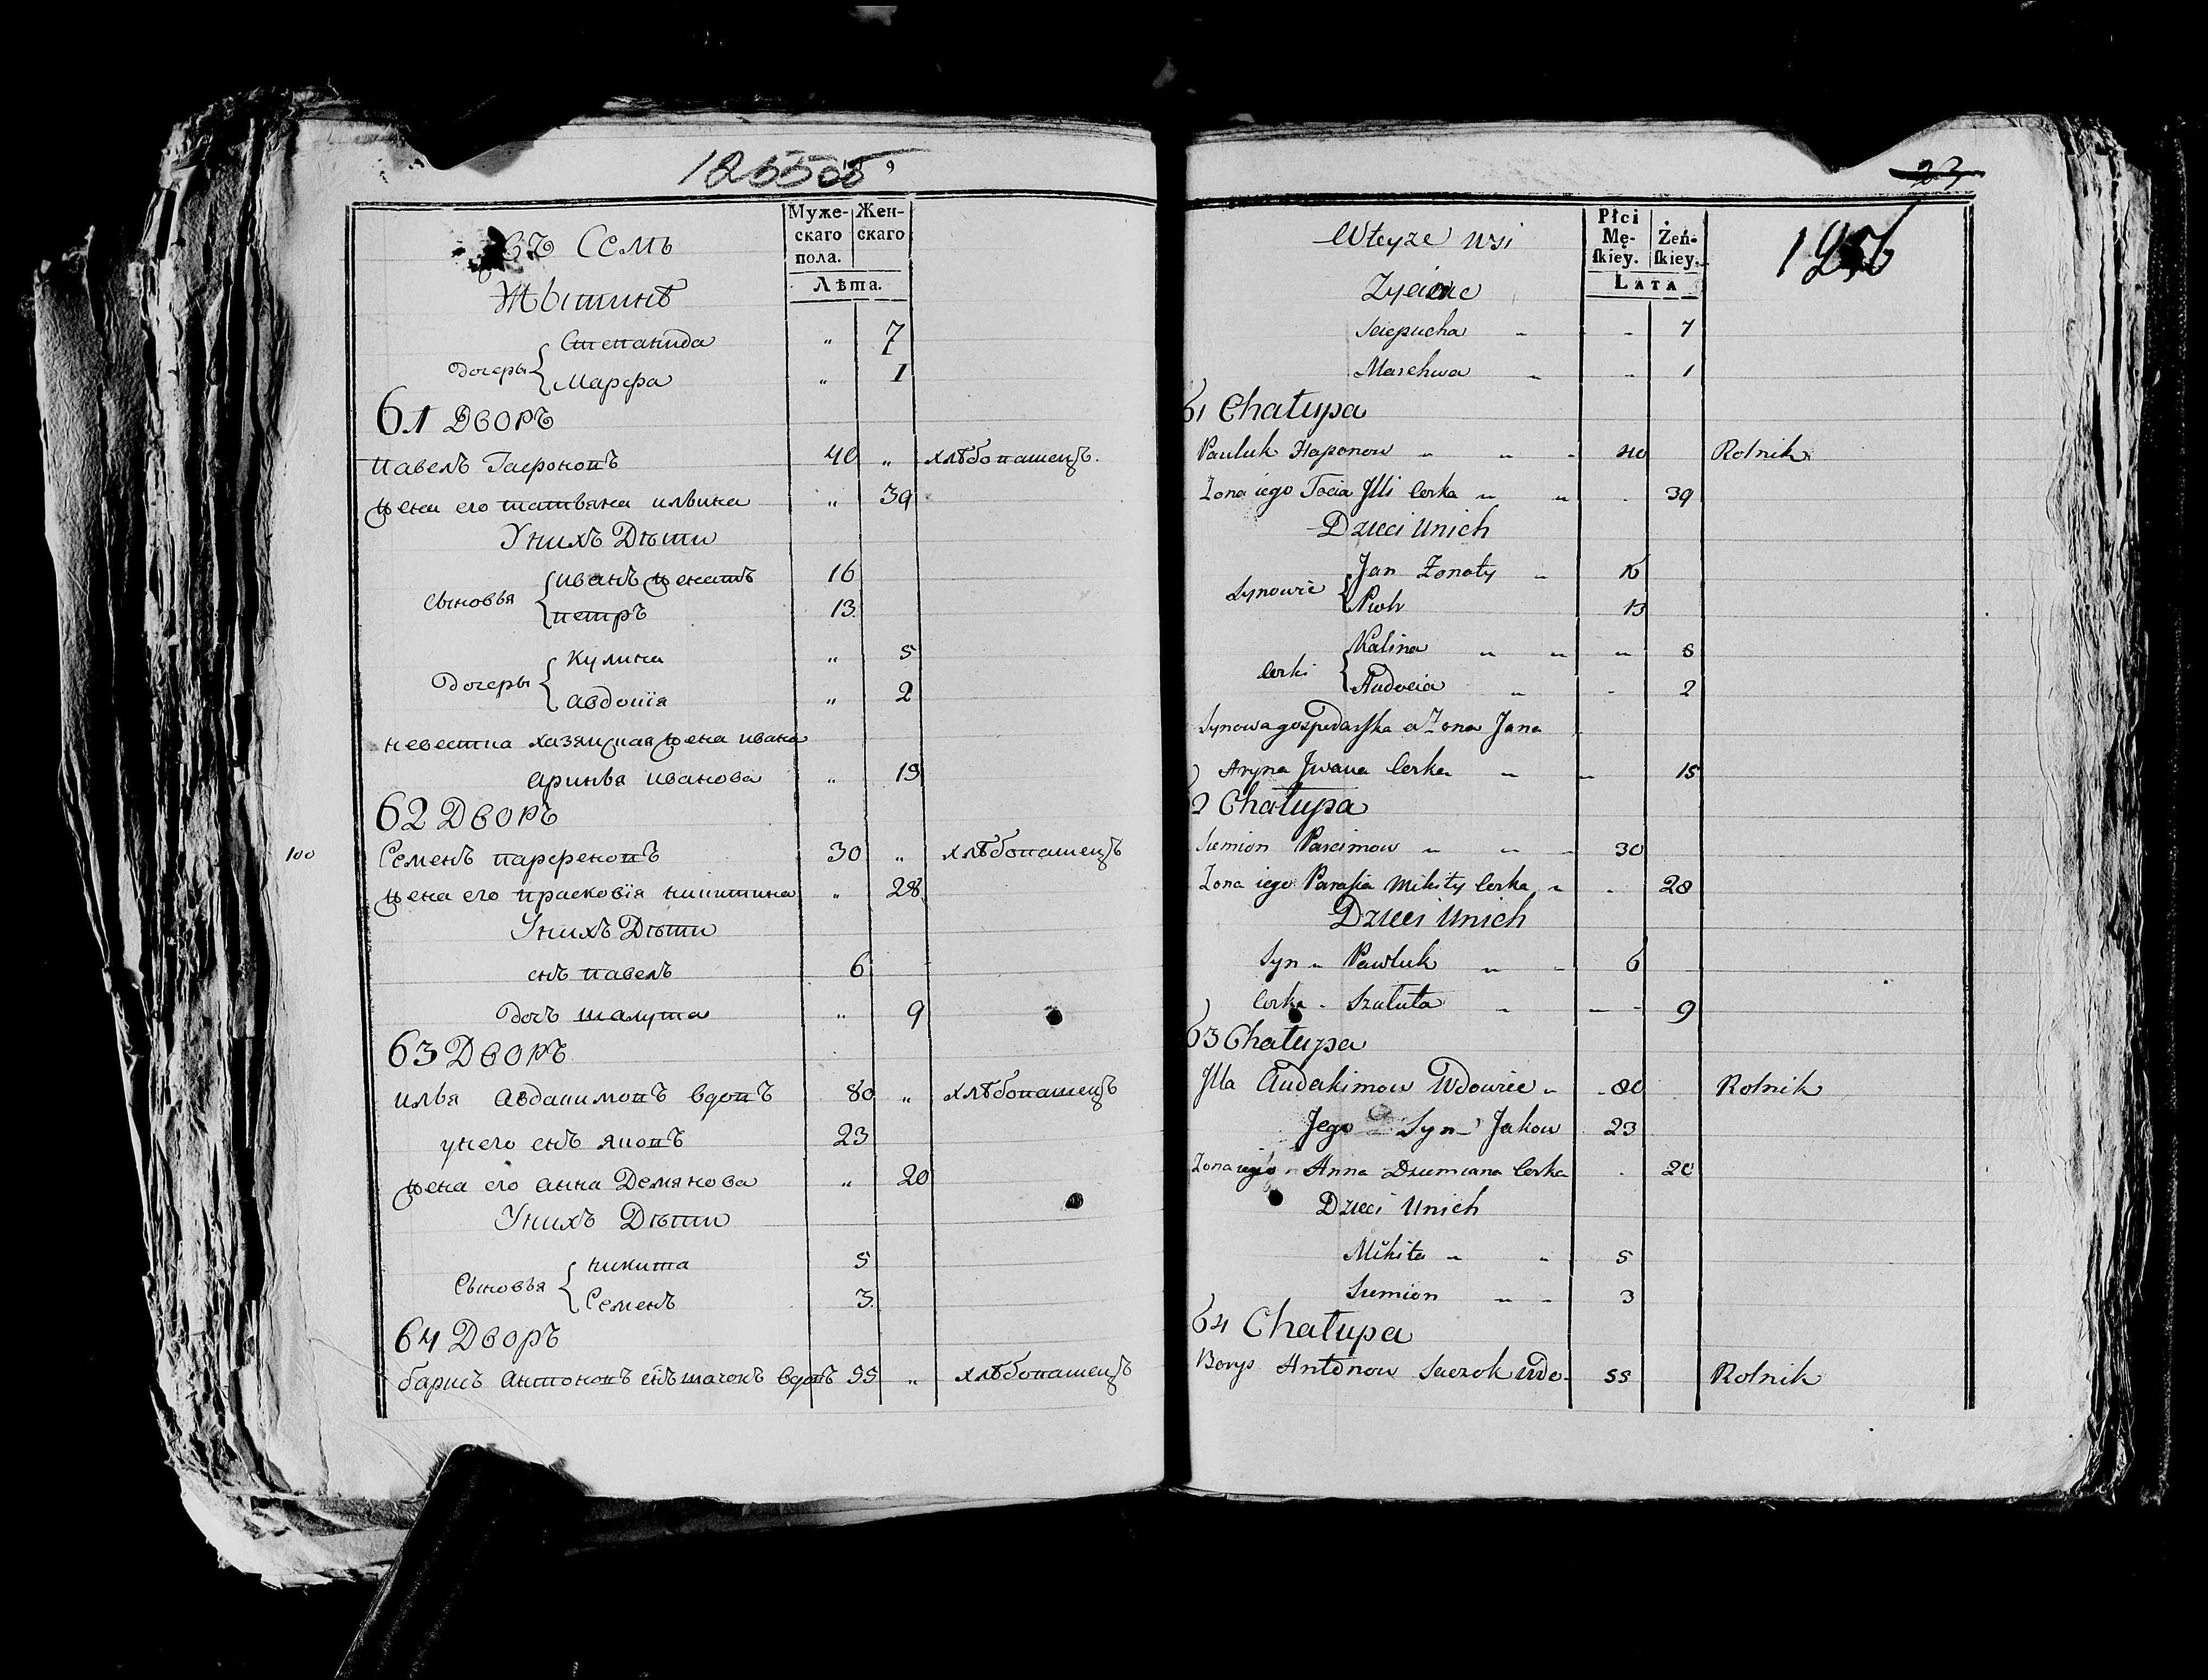 9
Муже-
скаго
пола.
Жен-
скаго
Лѣта.
въ Семъ
Жытинѣ
Дочеры
Степанида " 7
Марфа " 1
61 Дворъ
павелъ Гапоновъ 40 " хлѣбопашецъ.
жена его татьяна ильина " 39
У нихъ Дѣти
Сыновья
иванъ женатъ 16
петръ 13
Дочеры
Кулина " 5
авдоція " 2
невестка хазяи жена ивана
аринья иванова " 15
62 Дворъ
100
Семенъ парфеновъ 30 " хлѣбопашецъ
жена его прасковія никитина " 28
У нихъ Дѣти
снъ павелъ 6
Дочъ " 9
63 Дворъ
илья Авдакимовъ вдовъ 80 " хлѣбопашецъ
унего снъ яковъ 23
жена его анна Демянова " 20
У нихъ Дѣти
Сыновья
никита 5
Семенъ 3
64 Дворъ
барисъ Антоновъ вдовъ 55 " хлѣбопашецъ
23
126
Płci
Mę-
skiey.
Żeń-
skiey.
Lata
Wteyże wsi
Zycinie
Sciepucha 7
Marchwa 1
61 Chałupa
Pauluk Haponow 40 Rolnik
Zona iego Tocia Illi Corka 39
Dzieci Unich
Synowie
Jan Zonaty 16
Piotr 13
Corki
Kalina 5
Audocia 2
Synowa gospodarska a Zona Jana
Aryna Jwana Corka 15
62 Chałupa
Siemion Parcimow 30
Zona iego Parasia Mikity Corka 28
Dzieci Unich
Syn Pawluk 6
Corka Szaluta 9
63 Chałupa
Jlla Audakimow Wdowiec 80 Rolnik
Jego Syn Jakow 23
Zona iego Anna Dziemiana Corka 20
Dzieci Unich
Mikita 5
Siemion 3
64 Chałupa
Borys Antonow Saczok Wdo 55 Rolnik